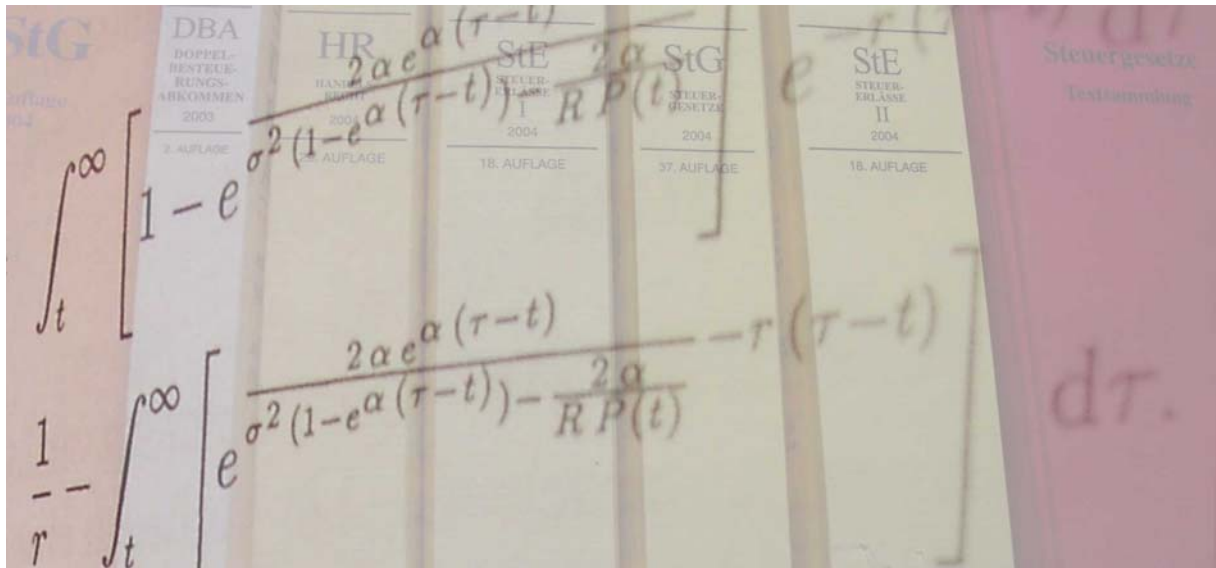 StG
Auflage
DBA
DOPPEL-
BESTEUE-
RUNGS-
ABKOMMEN
2003
2. AUFLAGE
HR
2004
AUFLAGE
StE
STEUER-
ERLÄSSE
I
2004
18. AUFLAGE
StG
STEUER-
GESETZE
2004
37. AUFLAGE
StE
STEUER-
ERLÄSSE
II
2004
18. AUFLAGE
Steuergesetze
Textsammlung
∫_t^∞ [1 − e^{\frac{2αe^{α(τ−t)}}{σ²(1−e^{α(τ−t)}) − \frac{2α}{R P(t)}}}] e^{−r(τ−t)} dτ
\frac{1}{r} − ∫_t^∞ [e^{\frac{2αe^{α(τ−t)}}{σ²(1−e^{α(τ−t)}) − \frac{2α}{R P(t)}} −r(τ−t)}] dτ.